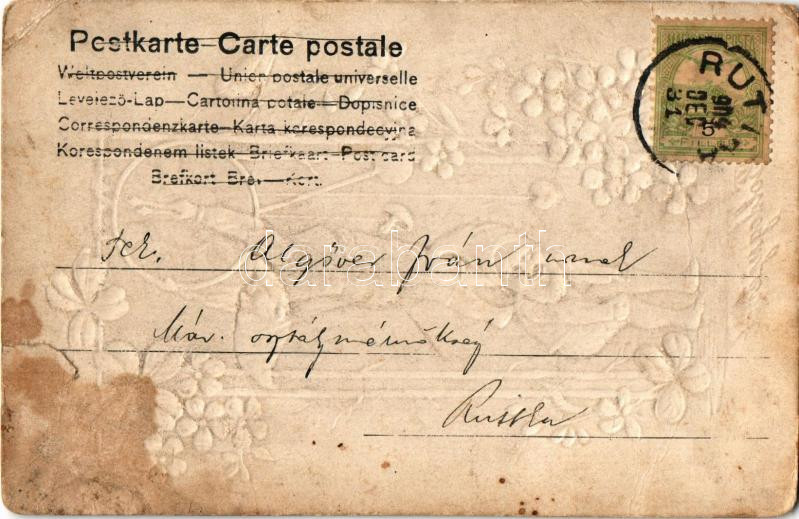 Postkarte–Carte postale
Weltpostverein — Union postale universelle
Levelező-Lap—Cartolina potale—Dopisnice
Correspondenzkarte–Karta korespondecyjna
Korespondenem listek–Briefkaart–Post card
Brefkort–Brev—Kort.
MAGYAR POSTA
5
FILLÉR
904
DEC
31
Tek.
Iván urnak
Máv. osztálymérnökség
Ruttka
darabanth